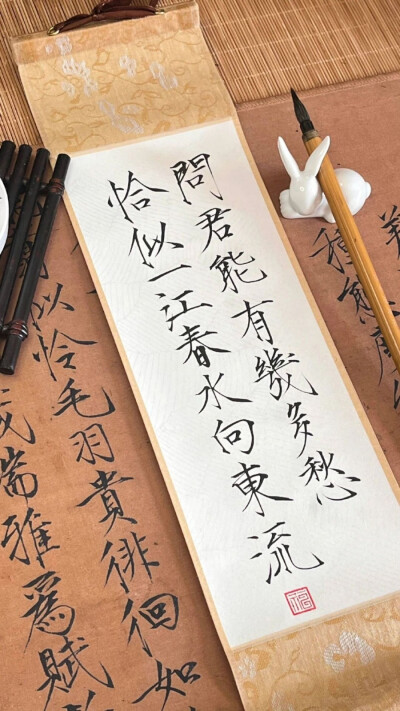 問君能有幾多愁
恰似一江春水向東流
福
種愈
似恰毛羽貴徘徊如
端雅爲賦